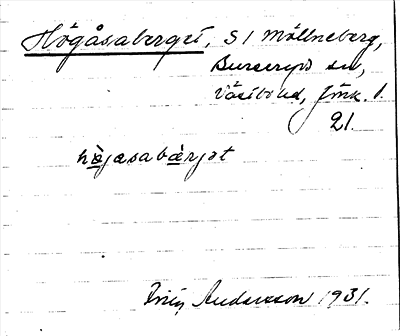 Högåsaberget, S1 Möllneberg,
Burseryds sn,
Västbo hd, Jönk. l.
21.
högasabärjet
Andersson 1931.